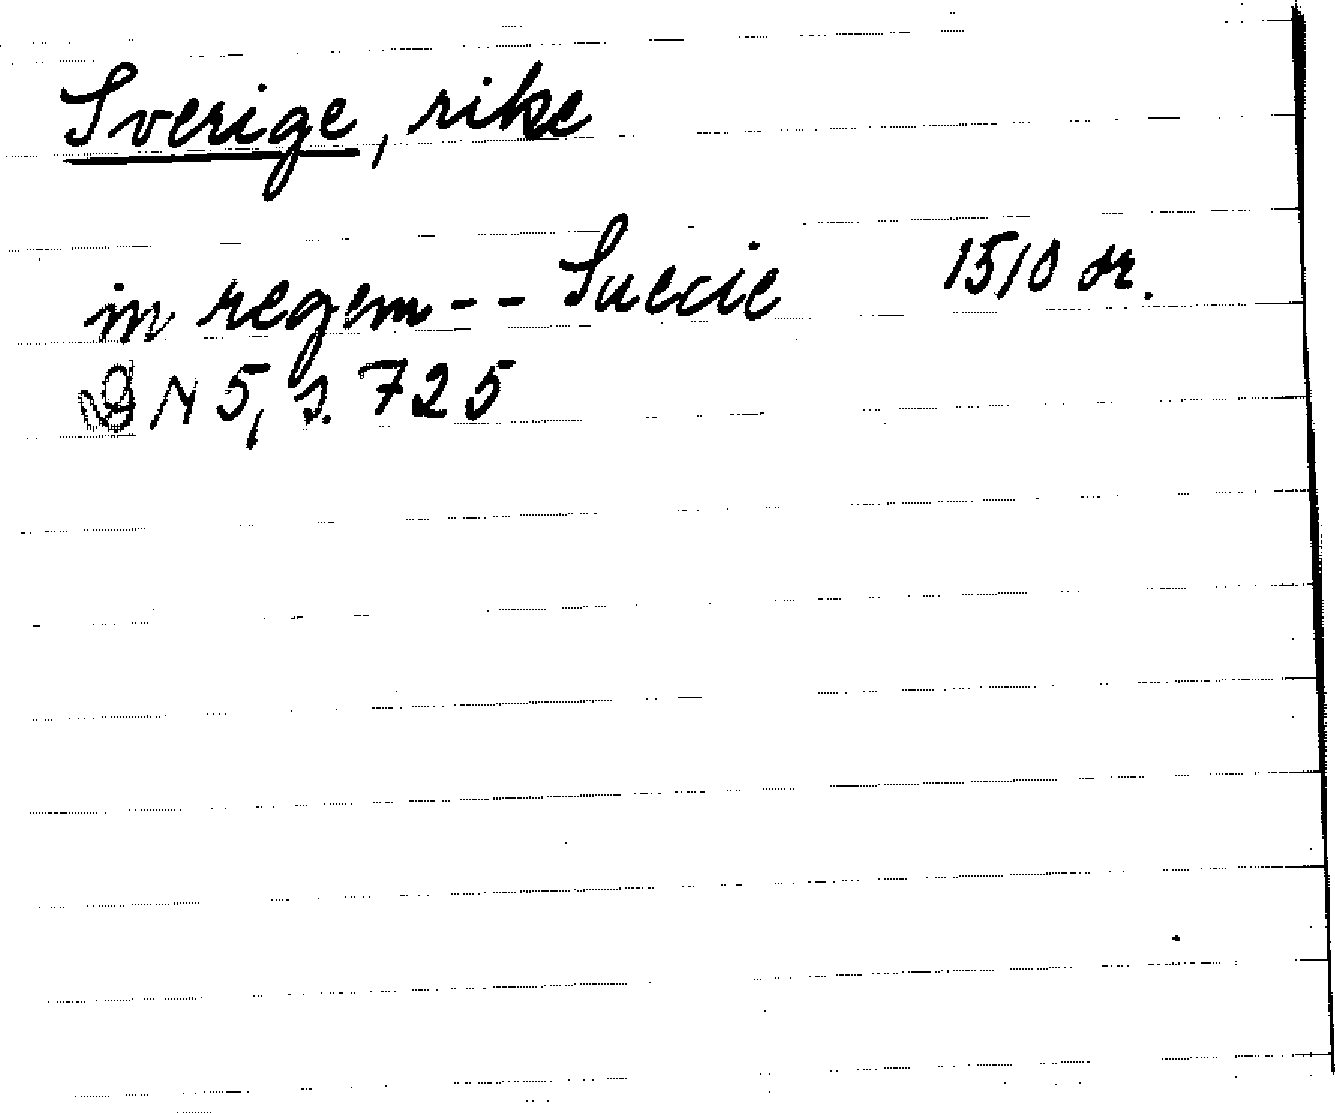 Sverige, rike
in regem -- Suecie 1510 dr.
DN 5, s. 725